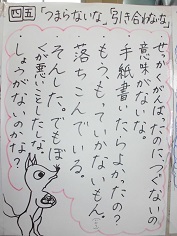 四五「つまらないな」引き合わないな
せっかくがんばったのに
意味がないな。
・手紙書いたらよかったの?
・もうもっていかないもん。
・落ちこんでいる。
・そんした。でもぼ
くが悪いことしたしな。
・しょうがないのかな?